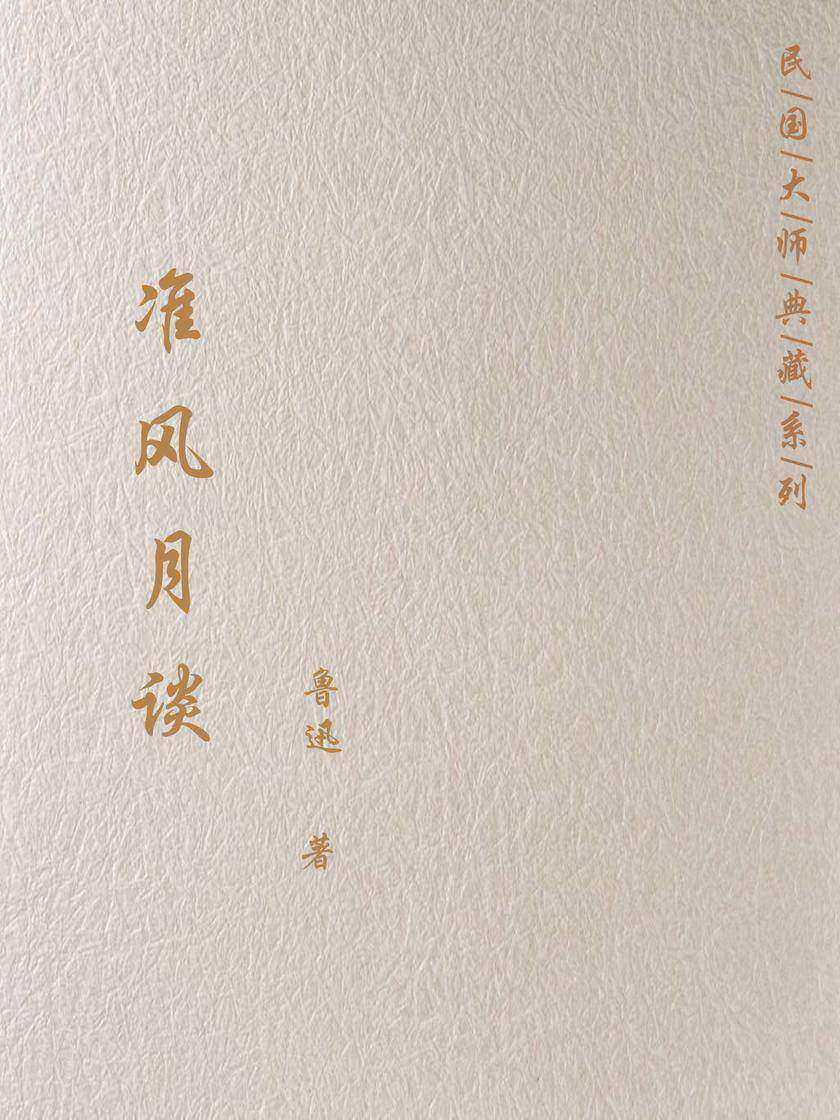 民/国/大/师/典/藏/系/列
准风月谈
鲁迅 著